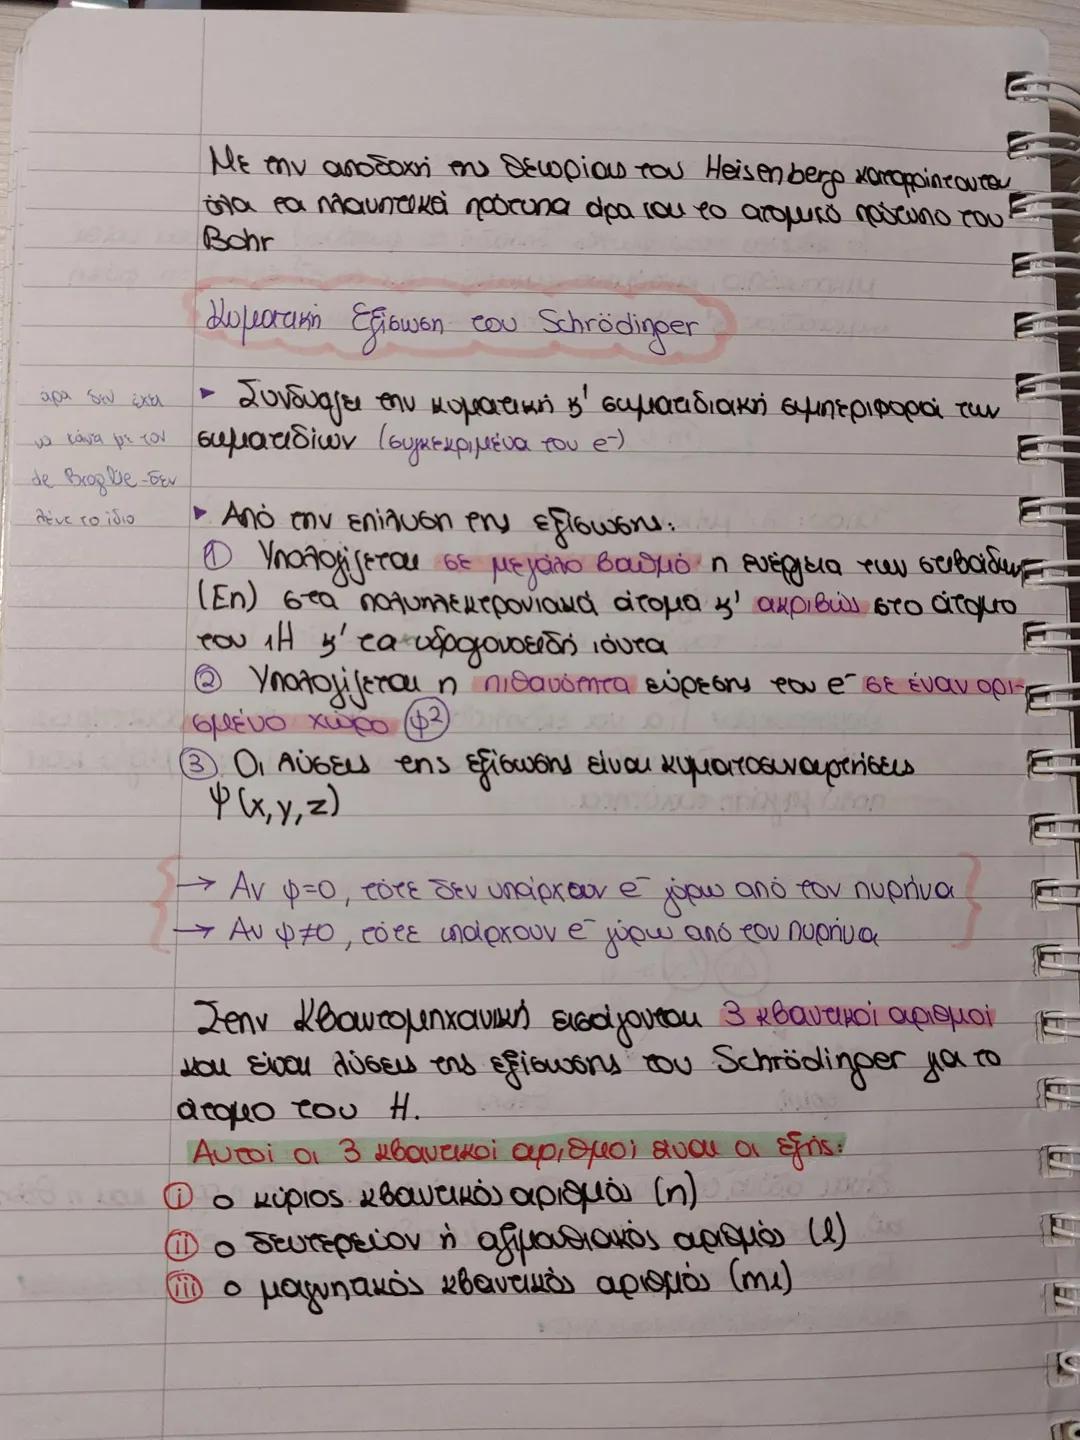 Με την αποδοχή της θεωρίας του Heisenberg καταρρίπτονται
όλα τα πλανητικά πρότυπα άρα και το ατομικό πρότυπο του
Bohr
Κυματική Εξίσωση του Schrödinger
▸ Συνδυάζει την κυματική κ' σωματιδιακή συμπεριφορά των
σωματιδίων (συγκεκριμένα του e-)
άρα δεν έχει
να κάνει με τον
de Broglie - δεν
λένε το ίδιο
▸ Από την επίλυση της εξίσωσης:
① Υπολογίζεται σε μεγάλο βαθμό η ενέργεια των στιβάδων
(En) στα πολυηλεκτρονιακά άτομα κ' ακριβώς στο άτομο
του 1H κ' τα υδρογονοειδή ιόντα
② Υπολογίζεται η πιθανότητα εύρεσης του e- σε έναν ορι-
σμένο χώρο (ψ²)
③ Οι λύσεις της εξίσωσης είναι κυματοσυναρτήσεις
ψ(x,y,z)
→ Αν ψ=0, τότε δεν υπάρχουν e- γύρω από τον πυρήνα
→ Αν ψ≠0, τότε υπάρχουν e- γύρω από τον πυρήνα
Στην Κβαντομηχανική εισάγονται 3 κβαντικοί αριθμοί
και είναι λύσεις της εξίσωσης του Schrödinger για το
άτομο του H.
Αυτοί οι 3 κβαντικοί αριθμοί είναι οι εξής:
ⓘ ο κύριος κβαντικός αριθμός (n)
ⓘⓘ ο δευτερεύον ή αζιμουθιακός αριθμός (l)
ⓘⓘⓘ ο μαγνητικός κβαντικός αριθμός (ml)